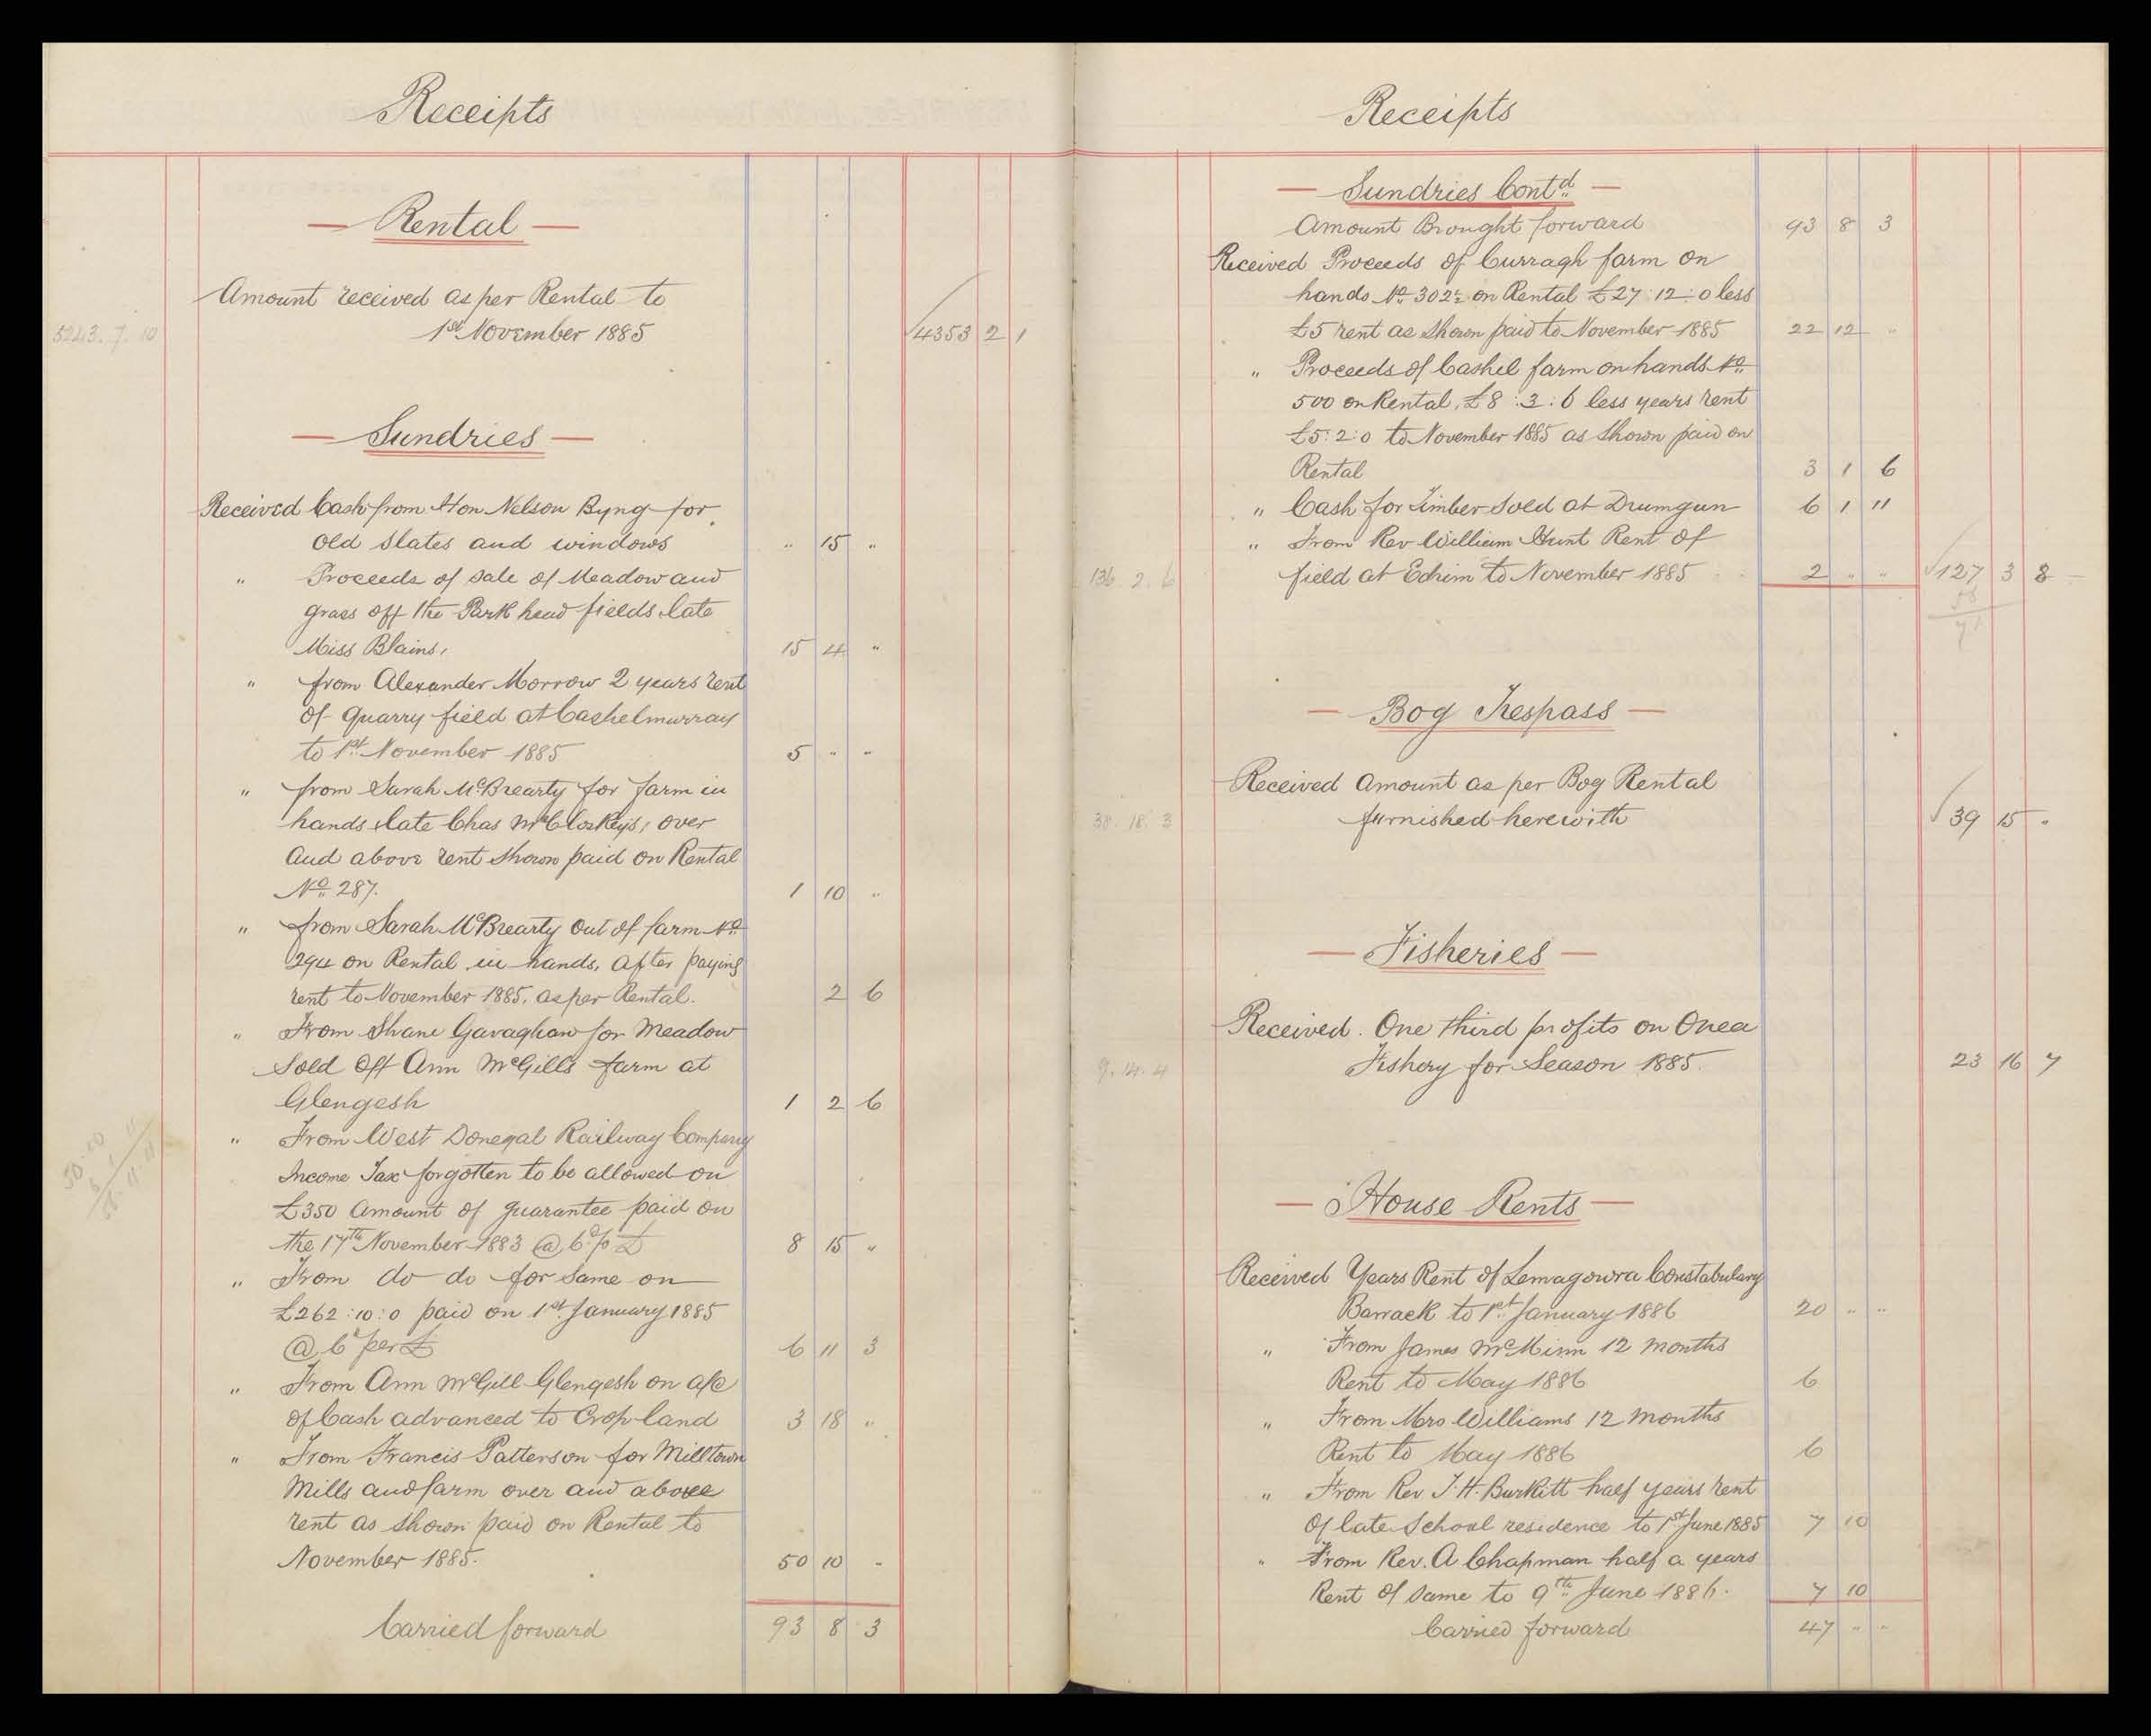 Receipts
Rental
Amount received as per Rental to
5243. 7. 10 1st November 1885 4353 2 1
Sundries
Received Cash from Hon Nelson Byng for
Old Slates and windows " 15 "
" Proceeds of sale of Meadow and
grass off the Park head fields late
Miss Blains, 15 4 "
" from Alexander Morrow 2 years rent
of quarry field at Cashelmurray
to 1st November 1885 5 " "
" from Sarah McBrearty for farm in
hands late Chas McCloskeys, over
and above rent shown paid on Rental
No 287. 1 10 "
" from Sarah McBrearty out of farm No
294 on Rental in hands, after paying
rent to November 1885, as per Rental. 2 6
" From Shane Gavaghan for Meadow
Sold off Ann McGills farm at
Glengesh 1 2 6
" From West Donegal Railway Company
Income Tax forgotten to be allowed on
£350 amount of guarantee paid on
the 17th November 1883 @ 6d p £ 8 15 "
" From do do for same on
£262:10:0 paid on 1st January 1885
@ 6d per £ 6 11 3
" From Ann McGill Glengesh on a/c
of Cash advanced to Crop land 3 18 "
" From Francis Patterson for Milltown
Mills and farm over and above
rent as shown paid on Rental to
November 1885. 50 10 "
Carried forward 93 8 3
Receipts
Sundries Contd
Amount Brought forward 93 8 3
Received Proceeds of Curragh farm on
hands No 302½ on Rental £27:12:0 less
£5 rent as shown paid to November 1885 22 12 "
" Proceeds of Cashel farm on hands No
500 on Rental, £8:3:6 less years rent
£5:2:0 to November 1885 as shown paid on
Rental 3 1 6
" Cash for Timber sold at Drumgun 6 1 11
" From Rev William Hunt Rent of
136. 2. 6 field at Edrim to November 1885 2 " " 127 3 8
Bog Trespass
Received Amount as per Bog Rental
38. 18. 3 furnished herewith 39 15 "
Fisheries
Received. One third profits on Onea
9. 14. 4 Fishery for Season 1885. 23 16 7
House Rents
Received Years Rent of Lemagowra Constabulary
Barrack to 1st January 1886 20 " "
" From James McMinn 12 months
Rent to May 1886 6
" From Mrs Williams 12 months
Rent to May 1886 6
" From Rev. J. H. Burkitt half years rent
Of late School residence to 1st June 1885 7 10
" From Rev. A Chapman half a years
Rent of same to 9th June 1886. 7 10
Carried forward 47 " "